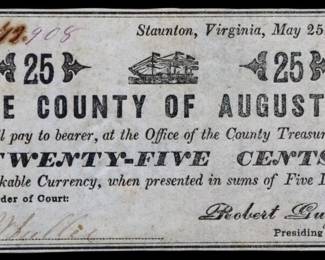 908
Staunton, Virginia, May 25
25 25
E COUNTY OF AUGUST
ll pay to bearer, at the Office of the County Treasur
TWENTY-FIVE CENTS
kable Currency, when presented in sums of Five
rder of Court:
Robert Gu
Presiding